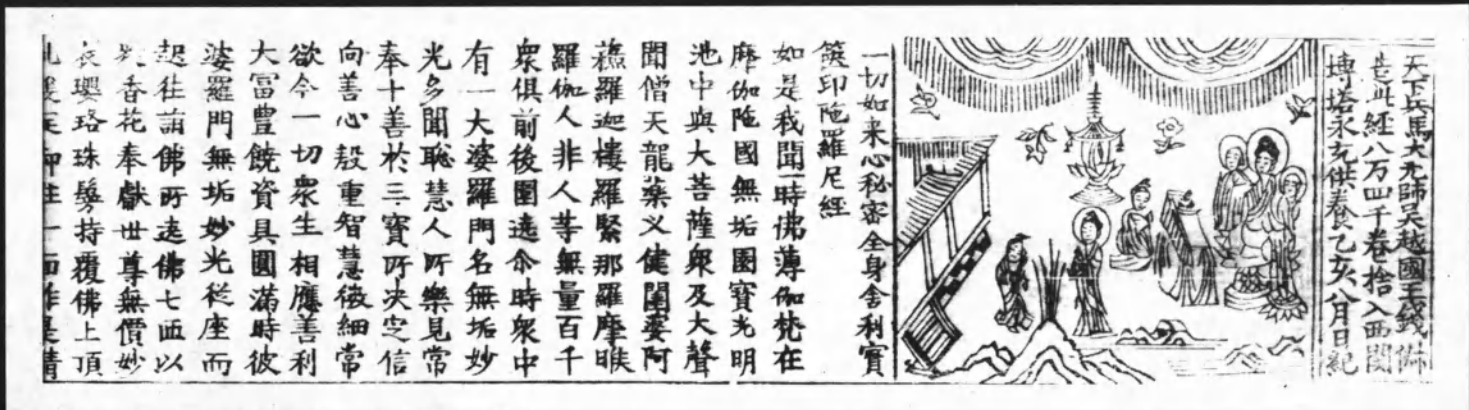 天下兵馬大元帥吳越國王錢俶
造此經八万四千卷捨入西關
塼塔永充供養乙亥八月日紀
一切如来心秘密全身舍利寶
篋印陁羅尼經
如是我聞一時佛薄伽梵在
摩伽陁國無垢園寶光明
池中與大菩薩衆及大聲
聞僧天龍藥叉健闥婆阿
蘓羅迦樓羅緊那羅摩睺
羅伽人非人等無量百千
衆俱前後圍遶尒時衆中
有一大婆羅門名無垢妙
光多聞聡慧人所樂見常
奉十善於三寶所决定信
向善心殷重智慧微細常
欲令一切衆生相應善利
大富豊饒資具圓滿時彼
婆羅門無垢妙光從座而
起往詣佛所遶佛七迊以
香花奉獻世尊無價妙
衣瓔珞珠鬘持覆佛上頂
却住一面作是請